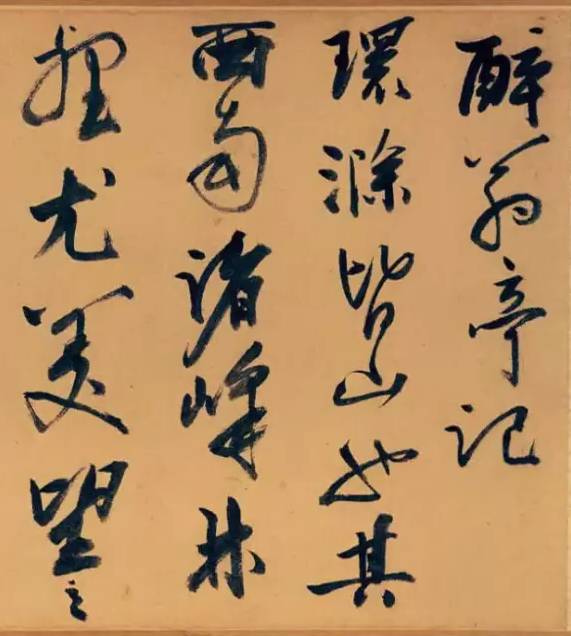 醉翁亭记
環滁皆山也其
西南诸峰林
壑尤美望之